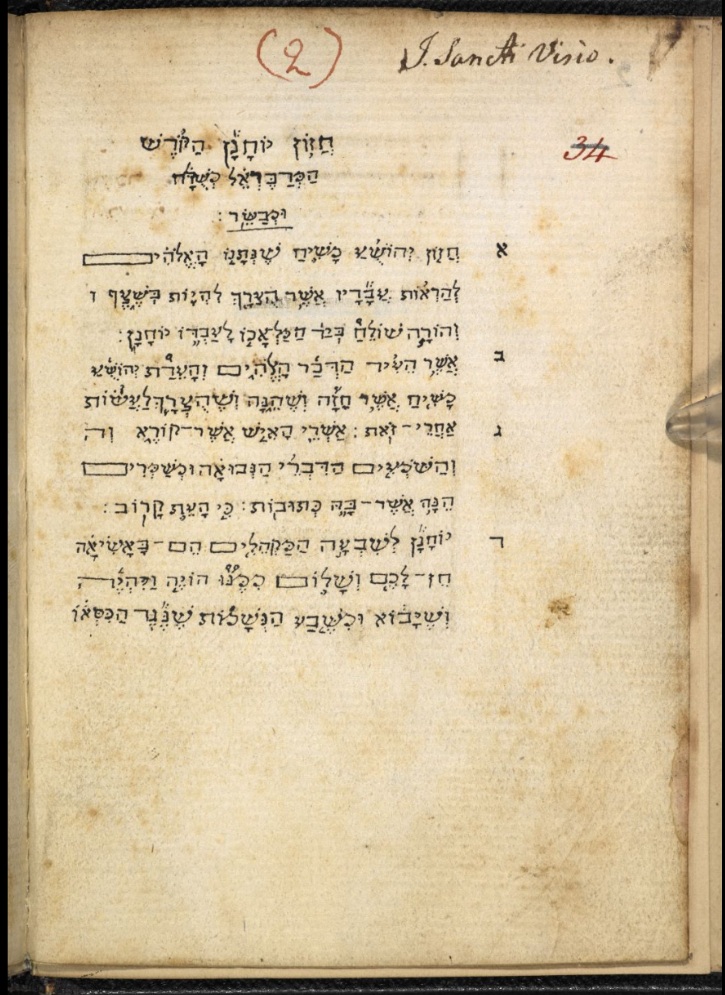 (2) J. Sancti Visio.
34
חֲזוֹן יוֹחָנָן הַקּוֹדֶשׁ
וּכְבַשֵּׂר :
א חֲזוֹן יְהוֹשֻׁעַ מָשִׁיחַ שֶׁנְּתָנוֹ הָאֱלֹהִים
לְהַרְאוֹת עֲבָּדָיו אֲשֶׁר הֻצְרַךְ לִהְיוֹת בְּשֶׁצֶף ו
וְהוֹרָה שׁוֹלֵחַ בְּיַד מַלְאָכוֹ לְעַבְדּוֹ יוֹחָנָן :
ב אֲשֶׁר הֵעִיד הַדְּבַר הָאֱלֹהִים וְהָעֵדֻת יְהוֹשֻׁעַ
מָשִׁיחַ אֲשֶׁר חָזָה וְשֶׁהִנֵּה וְשֶׁהֻצְרַךְ לַעֲשׂוֹת
ג אַחֲרֵי־זֹאת : אַשְׁרֵי הָאִישׁ אֲשֶׁר־קוֹרֵא וְה
וְהַשֹּׁמְעִים הַדִּבְרֵי הַנְּבוּאָה וְשֹׁמְרִים
הִנֵּה אֲשֶׁר־בָּהּ כְּתוּבוֹת : כִּי הָעֵת קָרוֹב :
ד יוֹחָנָן לְשִׁבְעָה הַמַּקְהֵלִים הֵם־בְּאָשִׂיאָה
חֵן־לָכֶם וְשָׁלוֹם מִמֶּנּוּ הוֹוֶה וְהָיָה
וְשֶׁיָּבוֹא וּמִשֶּׁבַע הַנְּשָׁמוֹת שֶׁנֶּגֶד הַכִּסְאוֹ